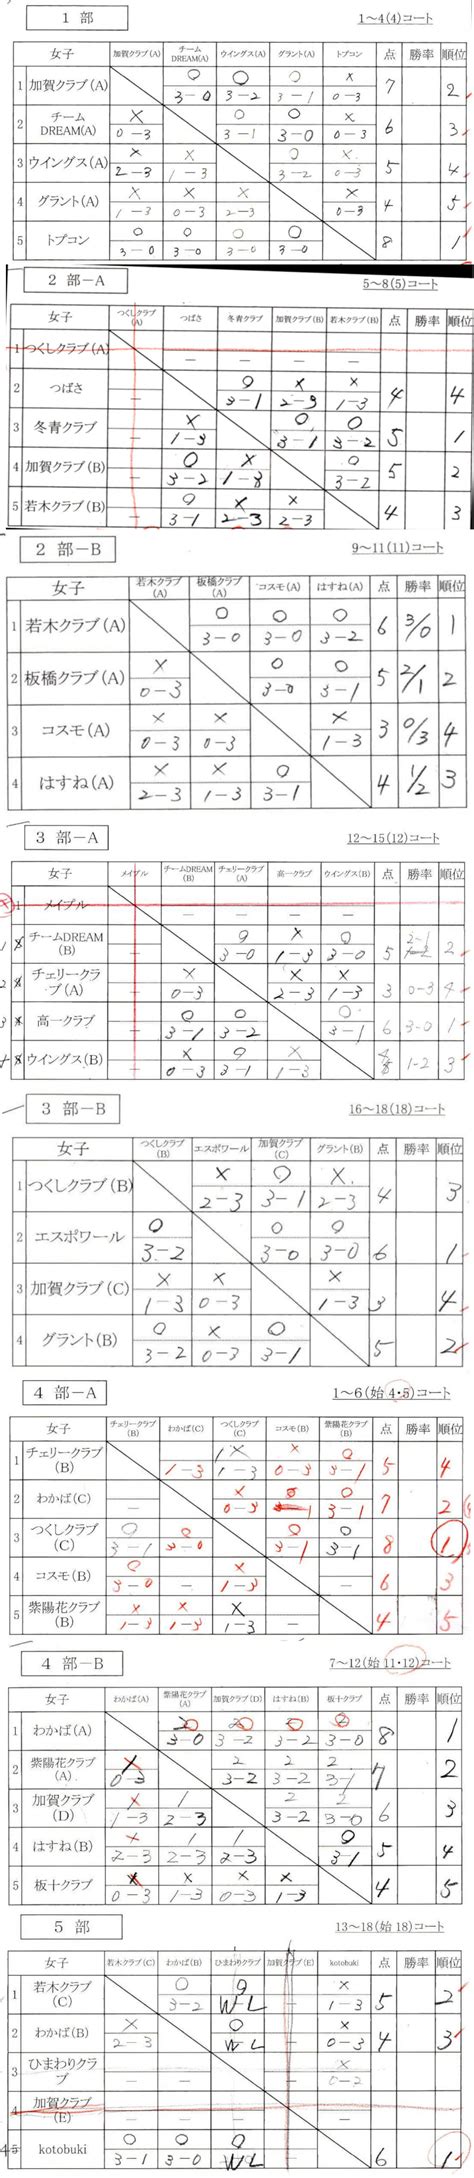 1 部 1～4(4)コート
女子 加賀クラブ(A) チームDREAM(A) ウイングス(A) グラント(A) トプコン 点 勝率 順位
1 加賀クラブ(A) ○ 3-0 ○ 3-2 ○ 3-1 × 0-3 7 2
2 チームDREAM(A) × 0-3 ○ 3-1 ○ 3-0 × 0-3 6 3
3 ウイングス(A) × 2-3 × 1-3 ○ 3-2 × 0-3 5 4
4 グラント(A) × 1-3 × 0-3 × 2-3 × 0-3 4 5
5 トプコン ○ 3-0 ○ 3-0 ○ 3-0 ○ 3-0 8 1
2 部－A 5～8(5)コート
女子 つくしクラブ(A) つばさ 冬青クラブ 加賀クラブ(B) 若木クラブ(B) 点 勝率 順位
1 つくしクラブ(A) － － － －
2 つばさ － ○ 3-1 × 2-3 × 1-3 4 4
3 冬青クラブ － × 1-3 ○ 3-1 ○ 3-2 5 1
4 加賀クラブ(B) － ○ 3-2 × 1-3 ○ 3-2 5 2
5 若木クラブ(B) － ○ 3-1 × 2-3 × 2-3 4 3
2 部－B 9～11(11)コート
女子 若木クラブ(A) 板橋クラブ(A) コスモ(A) はすね(A) 点 勝率 順位
1 若木クラブ(A) ○ 3-0 ○ 3-0 ○ 3-2 6 3/0 1
2 板橋クラブ(A) × 0-3 ○ 3-0 ○ 3-1 5 2/1 2
3 コスモ(A) × 0-3 × 0-3 × 1-3 3 0/3 4
4 はすね(A) × 2-3 × 1-3 ○ 3-1 4 1/2 3
3 部－A 12～15(12)コート
女子 メイプル チームDREAM(B) チェリークラブ(A) 高一クラブ ウイングス(B) 点 勝率 順位
1 メイプル － － － －
チームDREAM(B) － ○ 3-0 × 1-3 ○ 3-0 5 2-1 2
チェリークラブ(A) － × 0-3 × 2-3 × 1-3 3 0-3 4
高一クラブ － ○ 3-1 ○ 3-2 ○ 3-1 6 3-0 1
ウイングス(B) － × 0-3 ○ 3-1 × 1-3 1-2 3
3 部－B 16～18(18)コート
女子 つくしクラブ(B) エスポワール 加賀クラブ(C) グラント(B) 点 勝率 順位
1 つくしクラブ(B) × 2-3 ○ 3-1 × 2-3 4 3
2 エスポワール ○ 3-2 ○ 3-0 ○ 3-0 6 1
3 加賀クラブ(C) × 1-3 × 0-3 × 1-3 3 4
4 グラント(B) ○ 3-2 × 0-3 ○ 3-1 5 2
4 部－A 1～6(始 4・5)コート
女子 チェリークラブ(B) わかば(C) つくしクラブ(C) コスモ(B) 紫陽花クラブ(B) 点 勝率 順位
1 チェリークラブ(B) 1-3 × 1-3 × 0-3 ○ 3-1 5 4
2 わかば(C) － × 0-3 ○ ○ 3-1 7 2
3 つくしクラブ(C) ○ 3-1 ○ 3-0 ○ 3-1 ○ 3-1 8 1
4 コスモ(B) ○ 3-0 － × 1-3 － 6 3
5 紫陽花クラブ(B) × 1-3 × 1-3 × 1-3 － 4 5
4 部－B 7～12(始 11・12)コート
女子 わかば(A) 紫陽花クラブ(A) 加賀クラブ(D) はすね(B) 板十クラブ 点 勝率 順位
1 わかば(A) ○ 3-0 ○ 3-2 ○ 3-2 ○ 3-0 8 1
2 紫陽花クラブ(A) × 0-3 2 3-2 2 3-2 2 3-1 7 2
3 加賀クラブ(D) × 1-3 1 2-3 2 3-2 2 3-0 6 3
4 はすね(B) × 2-3 1 2-3 1 2-3 ○ 3-1 5 4
5 板十クラブ × 0-3 × 1-3 × 0-3 × 1-3 4 5
5 部 13～18(始18)コート
女子 若木クラブ(C) わかば(B) ひまわりクラブ 加賀クラブ(E) kotobuki 点 勝率 順位
1 若木クラブ(C) ○ 3-2 ○ W-L － × 1-3 5 2
2 わかば(B) × 2-3 ○ W-L － × 0-3 4 3
3 ひまわりクラブ － － － × 0-2
4 加賀クラブ(E) － － － －
45 kotobuki ○ 3-1 ○ 3-0 ○ W-L － 6 1